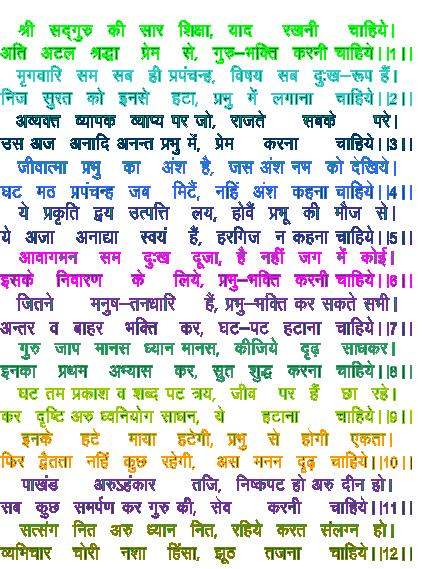 श्री सद्गुरु की सार शिक्षा, याद रखनी चाहिये।
अति अटल श्रद्धा प्रेम से, गुरु–भक्ति करनी चाहिये।।1।।
मृगवारि सम सब ही प्रपंचन्ह, विषय सब दुःख–रूप हैं।
निज सुरत को इनसे हटा, प्रभु में लगाना चाहिये।।2।।
अव्यक्त व्यापक व्याप्य पर जो, राजते सबके परे।
उस अज अनादि अनन्त प्रभु में, प्रेम करना चाहिये।।3।।
जीवात्मा प्रभु का अंश है, जस अंश नभ को देखिये।
घट मठ प्रपंचन्ह जब मिटैं, नहिं अंश कहना चाहिये।।4।।
ये प्रकृति द्वय उत्पत्ति लय, होवैं प्रभू की मौज से।
ये अजा अनाद्या स्वयं हैं, हरगिज न कहना चाहिये।।5।।
आवागमन सम दुःख दूजा, है नहीं जग में कोई।
इसके निवारण के लिये, प्रभु–भक्ति करनी चाहिये।।6।।
जितने मनुष–तनधारि हैं, प्रभु–भक्ति कर सकते सभी।
अन्तर व बाहर भक्ति कर, घट–पट हटाना चाहिये।।7।।
गुरु जाप मानस ध्यान मानस, कीजिये दृढ़ साधकर।
इनका प्रथम अभ्यास कर, स्रुत शुद्ध करना चाहिये।।8।।
घट तम प्रकाश व शब्द पट त्रय, जीव पर हैं छा रहे।
कर दृष्टि अरु ध्वनियोग साधन, ये हटाना चाहिये।।9।।
इनके हटे माया हटेगी, प्रभु से होगी एकता।
फिर द्वैतता नहिं कुछ रहेगी, अस मनन दृढ़ चाहिये।।10।।
पाखंड अरुऽहंकार तजि, निष्कपट हो अरु दीन हो।
सब कुछ समर्पण कर गुरु की, सेव करनी चाहिये।।11।।
सत्संग नित अरु ध्यान नित, रहिये करत संलग्न हो।
व्यभिचार चोरी नशा हिंसा, झूठ तजना चाहिये।।12।।